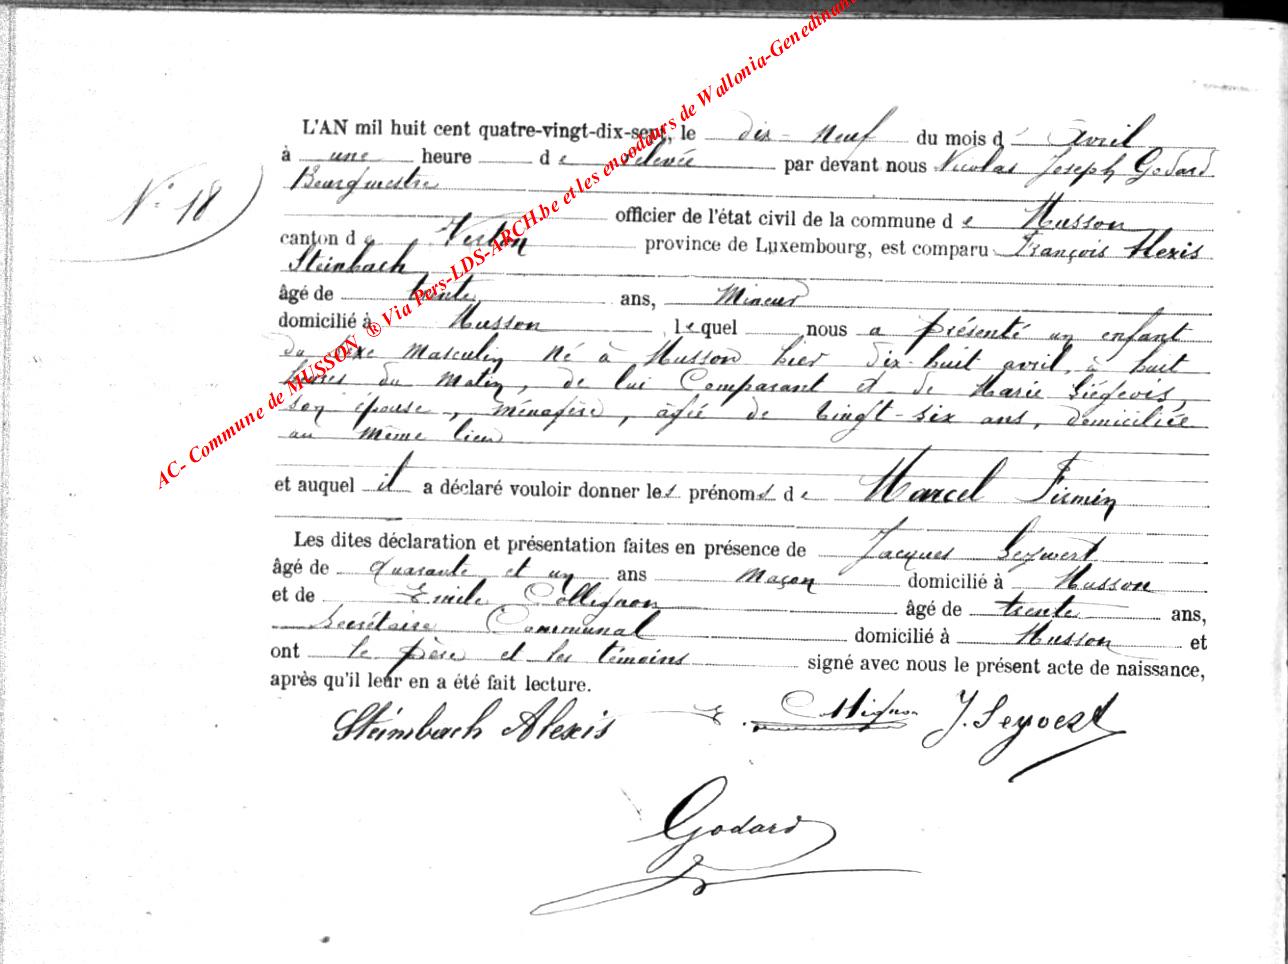 AC- Commune de MUSSON ® Via Pers-LDS-ARCH.be et les encodeurs de Wallonia-Genedinant
L'AN mil huit cent quatre-vingt-dix-sept, le dix-neuf du mois d' avril
à une heure de relevée par devant nous Nicolas Joseph Godard
Bourgmestre
N° 18
officier de l'état civil de la commune de Musson
canton de Virton province de Luxembourg, est comparu François Alexis
Steinbach
âgé de trente ans, Mineur
domicilié à Musson lequel nous a présenté un enfant
du sexe Masculin né à Musson hier dix-huit avril, à huit
heures du matin, de lui Comparant et de Marie Liégeois,
son épouse, ménagère, âgée de vingt-six ans, domiciliée
au même lieu
et auquel il a déclaré vouloir donner les prénoms de Marcel Firmin
Les dites déclaration et présentation faites en présence de Jacques
âgé de quarante et un ans maçon domicilié à Musson
et de Emile Collignon âgé de trente ans,
Secrétaire Communal domicilié à Musson et
ont le père et les témoins signé avec nous le présent acte de naissance,
après qu'il leur en a été fait lecture.
Steinbach Alexis E. Collignon J. Seyvert
Godard